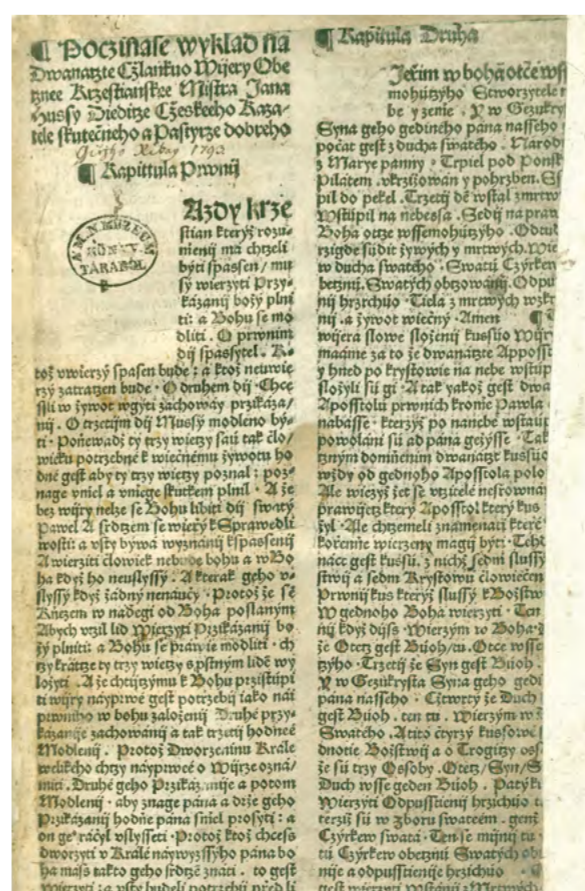 ¶ Poczinase wyklad na
Dwanatzte Cżlankuo Wijery Obe
tznee Krzestianskee Mistra Jana
Hussy Dieditze Cżeskeeho Kaza-
tele skutecneho a Pastyrze dobreho
¶ Kapittula Prwnij
Azdy krze
stian kteryż rozu-
mienij ma chtzeli
byti spassen / mu
sy wierzyti Przy-
kazanij bożij plni
ti: a Bohu se mo
dliti. O prwnim
dij spassytel. K-
toż vwierzy spasen bude: a ktoż neuwie
rzy zatratzen bude. O druhem dij. Chce
ssli w żywot wgiti zachoway przikaza/
nij. O trzetijm dij Mussy modleno by-
ti. Poniewadż ty trzy wietzy sau tak clo/
wieku potrzebne k wiecznemu żywotu ho
dne gest aby ty trzy wietzy poznal: poz-
nage vniel a vniege skutkem plnil. A że
bez wijry nelze se Bohu libiti dij swaty
Pawel A srdtzem se wierzy k Sprawedli
wosti: a vsty bywa wyznanij k spassenij
A wierziti clowiek nebude bohu a w Bo
ha kdyż ho neuslyssy. A kterak geho v-
slyssy kdyż żadny nenaucy. Protoż że se
Knezem w nadegi od Boha poslanym
Abych vczil lid Wierzyti Przikazanij bo-
ży plniti: a Bohu se prawie modliti. ch
tzy kratze ty trzy wietzy s pstnym lide wy
lożyti. A że chtijtzymu k Bohu przistupi
ti wijry nayprwe gest potrzebij iako nai
prwniho w bohu założenij Druhe przy-
kazanije zachowanij a tak trzetij hodnee
Modlenij. Protoż Dworzeninu Krale
welikeho chtzy nayprwee o Wijrze ozna/
miti. Druhe geho Przikazanije a potom
Modlenij. aby znage pana a drże geho
Przikazanij hodne pana smiel prosyti: a
on ge raczyl vslysseti. Protoż ktoż chcess
dworzyti v Krale naywyżssyho pana bo
ha mass takto geho srdtze znati. to gest
wierzyti: a vsty budeli potrzebij pred li
¶ Kapitula Druha
Jerim w boha otce wss
mohutzyho Stworzytele n
be y zenie. Y w Gezukry
Syna geho gedineho pana nasseho
poczat gest z ducha swateho. Narod
z Marye panny. Trpiel pod Ponsk
Pilatem. vkrziżowan y pohrzben. S
pil do pekel. Trzetij de wstal z mrtw
Wstupil na nebessa. Sedij na praw
Boha otze wssemohutzyho. Odtud
rzigde sudit żywych y mrtwych. Wie
w ducha swateho. Swatu Czyrkew
betznu. Swatych obtzowanij. Odpu
nij hrzichuo. Tiela z mrtwych wzkr
nij. a żywot wieczny. Amen
wijera slowe slożenij kussuo Wijr
maame za to że dwanatzte Appost
y hned po krystowie na nebe wstup
slożyli su gi. A tak yakoż gest dwa
Aposstolu prwnich kromie Pawla
nabasse. kterzyż po nanebe wstaup
powolani su ad pana geżysse. Tak
tznym domnenim dwanatzt kussuo
wżdy od gednoho Aposstola polo
Ale wiezyż żet se vtzitele nesrowna
prawijetz ktery Aposstol ktery kus
żyl. Ale chtzemeli znamenati ktere
korzenie wierzeny magij byti. Tehd
natz gest kussu. z nichż sedm slussy
strwij a sedm Krystowu clowieczen
Prwnij kus kteryż slussy k Boistw
W gednoho Boha wierzyti. Ten
nij kdyż dijss. Wierzym w Boha.
że Otetz gest Buoh/tu. Otce wsse
tzyho. Trzetij że Syn gest Buoh.
Y w Gezukrysta Syna geho gedi
pana nasseho. Cztwrty że Duch
gest Buoh. ten tu. Wierzym w
Swateho. A tito cztyrzy kussowe
dnotie Boistwij a o Trogitzy oss
że su trzy Ossoby. Otetz/Syn/S
Duch wsse geden Buoh. Paty k
Wierzyti Odpusstienij hrzichuo
terziż su w zboru swateem. genż
Czyrkew swata. Ten se mijnij tu
tu Czyrkew obetznu Swatych ob
nije a odpusstienije hrzichuo